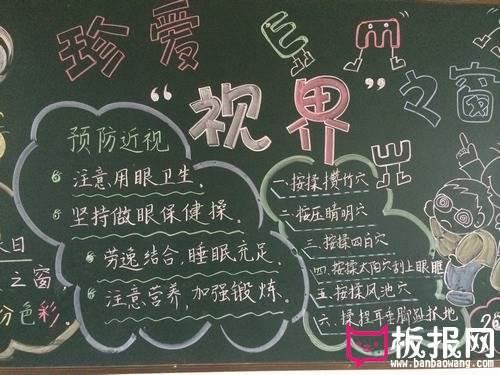 珍爱
"视界"之窗
预防近视
注意用眼卫生。
坚持做眼保健操。
劳逸结合,睡眠充足。
注意营养,加强锻炼。
一.按揉攒竹穴
二.按压睛明穴
三.按揉四白穴
四.按揉太阳穴刮上眼眶
五.按揉风池穴
六.揉捏耳垂脚趾抓地
日
之窗,
份色彩.
板报网
www.banbaowang.com